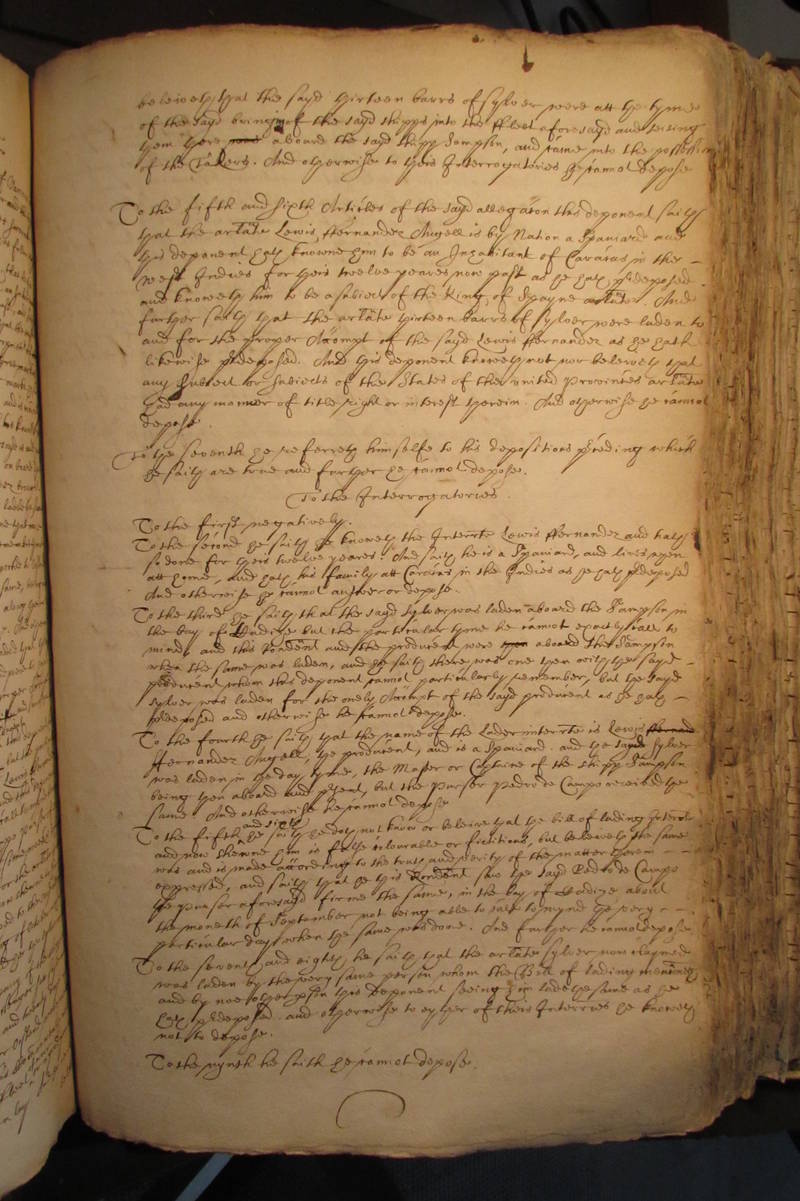 beleiveth that the sayd thirteen barrs of sylver were att the tyme
of the sayd bringing of the sayd shipps into the River aforesayd and seising
them there aboard the sayd shipp Sampson, and came into the possession
of the Takers. And otherwise to this Interrogatories he cannot depose
To the fifth and sixth Articles of the sayd allegãon this deponent saith
that the arlate Lewis ffernandez Angell is by Nation a Spaniard and
this deponent hath knowne him to be an Inhabitant of Caracas in the -
West Indies for theis twelve yeares now past as he hath p̄deposed
and knoweth him to be a subiect of the King of Spayne arlate. And
further saith that the arlate thirteen barrs of sylver were laden to
and for the proper Accompt of the sayd Lewis ffernandez as he hath
likewise p̄deposed. And this deponent knoweth not nor beleiveth that
any Subiect or Subiects of the States of the united Provinces arlate
had any manner of title right or interest therein. And otherwise he cannot
depose.
To the seventh he referreth himselfe to his depositions p̄ceding which
he saith are true and further he cannot depose.
To the Interrogatories.
To the first negatively.
To the second he saith he knoweth the Interrate Lewis ffernandez and hath
so done for theis twelve yeares. And saith he is a Spaniard, and lives
att home, and hath his family att Caracas in the Indies as he hath p̄deposed
And otherwise he cannot answer or depose.
To the third he saith that the sayd sylver was laden aboard the Sampson in
the bay of but the particular tyme he cannot exactly call to
mind, and this Rendent and the producent were aboard the Sampson
when the same was laden, and he saith there was one then with the sayd -
producent whom this deponent cannot particularly remember, but the sayd
sylver was laden for the onely Accompt of the sayd producent as he hath -
p̄deposed and otherwise he cannot depose.
To the fourth he saith that the name of the Lader interrate is Lewis ffernand
Hernandez Angell, the producent, and is a Spaniard. and the sayd sylver
was laden in the day tyme, the Master or Captaine of the shipp Sampson
being then aboard and p̄sent, but the Purser Pedro de Campo received the
same. And otherwise he cannot depose
To the fifth and sixth he saith he doth not know or beleive that the bill of lading Interrate
and now shewne him is false colourable or fictitious, but beleiveth the same
was and is made according to the truth and verity of the matter therein -
expressed, and saith that he this Rendent saw the sayd Pedro de Campo
the purser aforesayd firme the same, in the bay of about
the moneth of September not being able to call to mynd the very - -
particular day when the same was done. And further he cannot depose.
To the seventh and eighth he saith that the arlate sylver now claymed
was laden by the very same person whom the Bill of lading mentions
and by noe other p̄son this Deponent seeing him lade the same as he
hath p̄deposed. and otherwise to eyther of theis Interries he knoweth
not to depose.
To the nynth he saith he cannot depose.